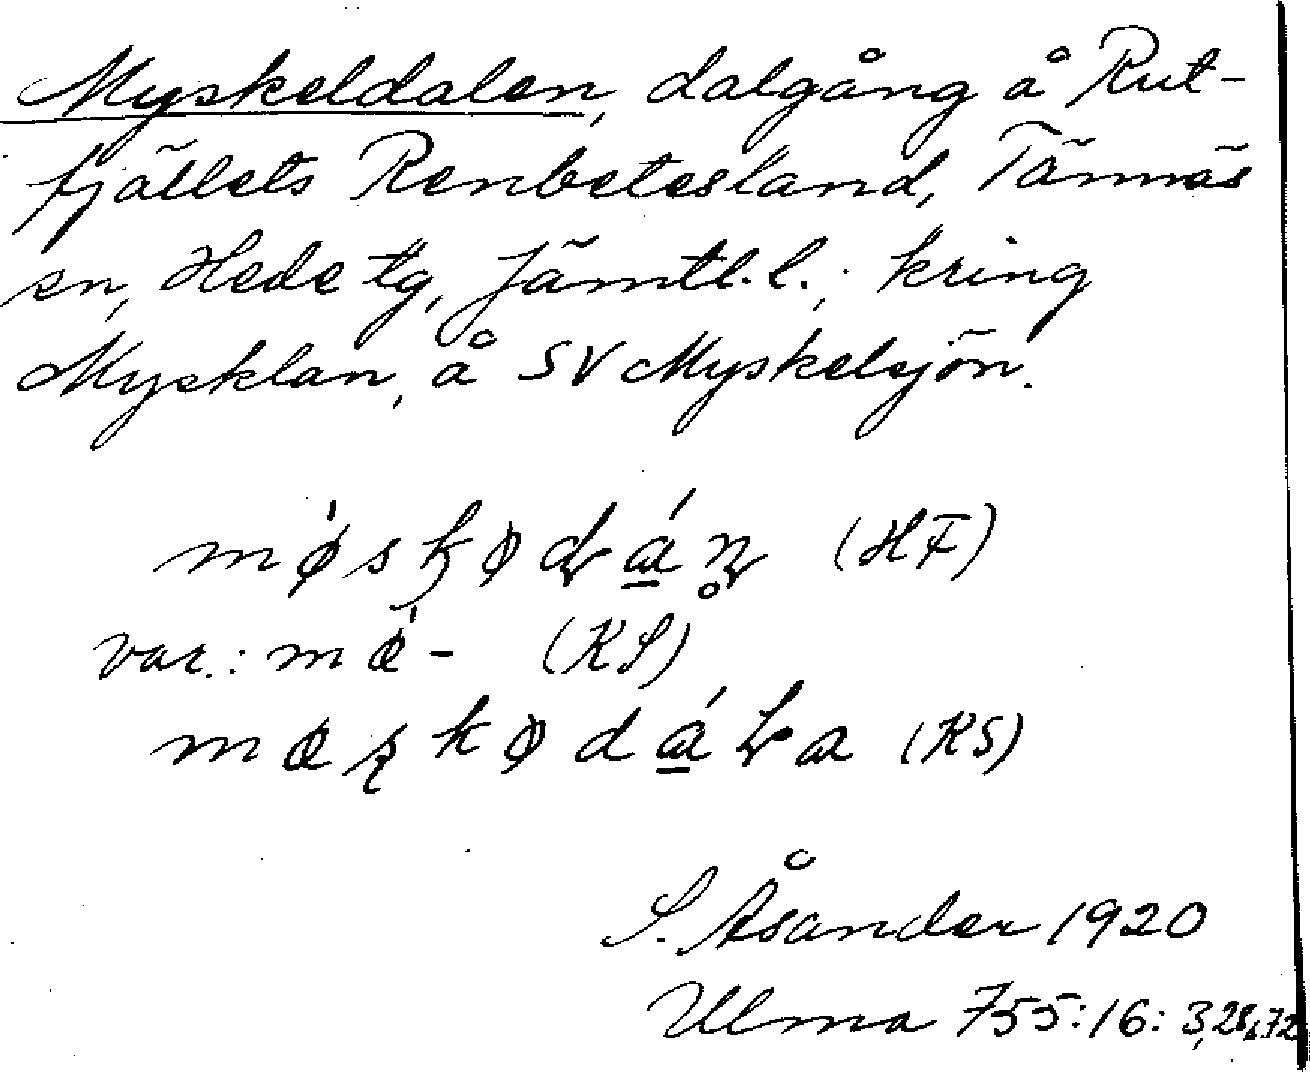 Myskeldalen, dalgång å Rut-
fjällets Renbetesland, Tännäs
sn, Hede tg, Jämtl. l.; kring
Mysklan, å SV Myskelsjön.
(HF)
var.: (KS)
(KS)
S. Åsander 1920
Ulma 755:16: 3,28,